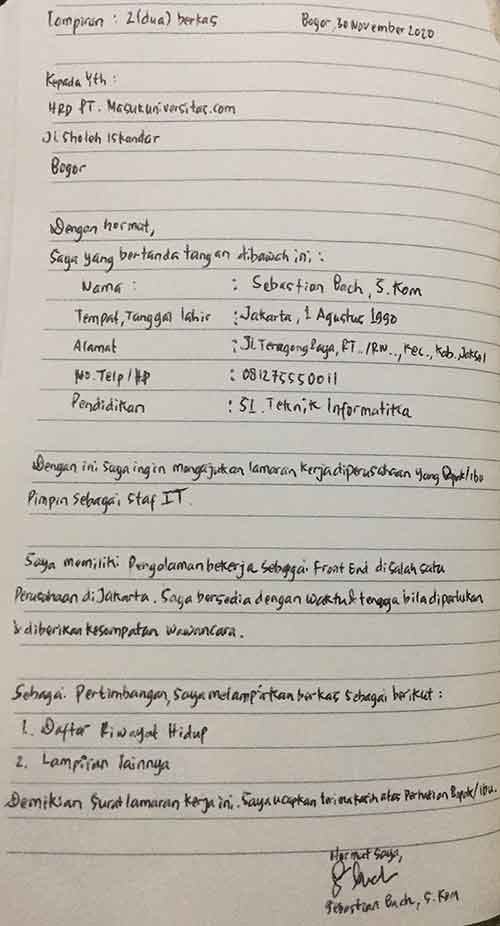 Lampiran : 2 (dua) berkas Bogor, 30 November 2020
Kepada Yth :
HRD PT. Masukuniversitas.com
Jl Sholeh Iskandar
Bogor
Dengan hormat,
Saya yang bertanda tangan dibawah ini :
Nama : : Sebastian Bach, S.Kom
Tempat, Tanggal lahir : Jakarta, 1 Agustus 1990
Alamat : Jl. Teragong Raya, RT../RW.., Kec., Kab. Jaksel
No. Telp/HP : 081275550011
Pendidikan : S1. Teknik Informatika
Dengan ini saya ingin mengajukan lamaran kerja diperusahaan yang Bapak/ibu
Pimpin sebagai staf IT.
Saya memiliki Pengalaman bekerja sebagai Front End disalah satu
Perusahaan di Jakarta. Saya bersedia dengan waktu & tenaga bila diperlukan
& diberikan kesempatan wawancara.
Sebagai Pertimbangan, saya melampirkan berkas sebagai berikut :
1. Daftar Riwayat Hidup
2. Lampiran lainnya
Demikian surat lamaran kerja ini. Saya ucapkan terima kasih atas Perhatian Bapak/ibu.
Hormat saya,
Sebastian Bach, S.Kom